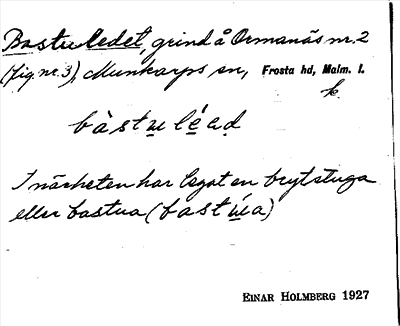 Bastuledet, grind å Ormanäs nr. 2
(fig. nr. 3), Munkarps sn, Frosta hd, Malm. l.
k
bàstu̲lé̲ad̲
I närheten har legat en brytstuga
eller bastua (bastú̲a)
EINAR HOLMBERG 1927